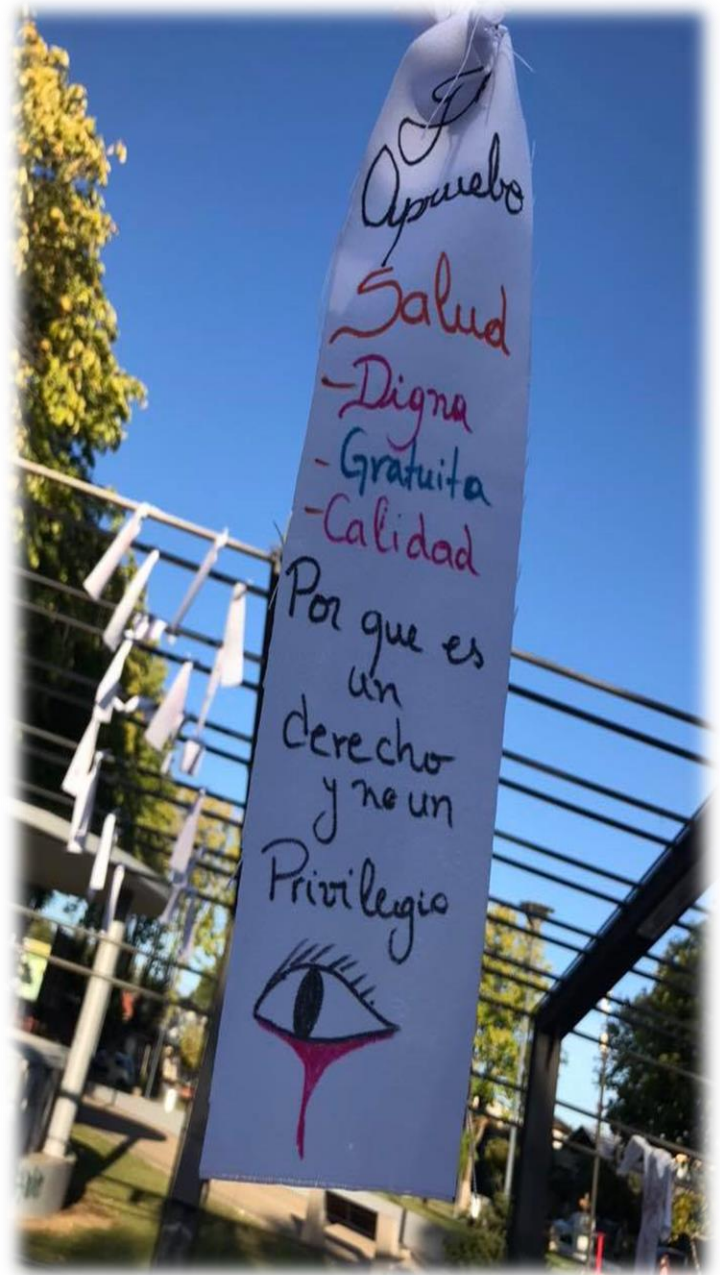 Apruebo
Salud
-Digna
-Gratuita
-Calidad
Por que es
un
derecho
y no un
Privilegio